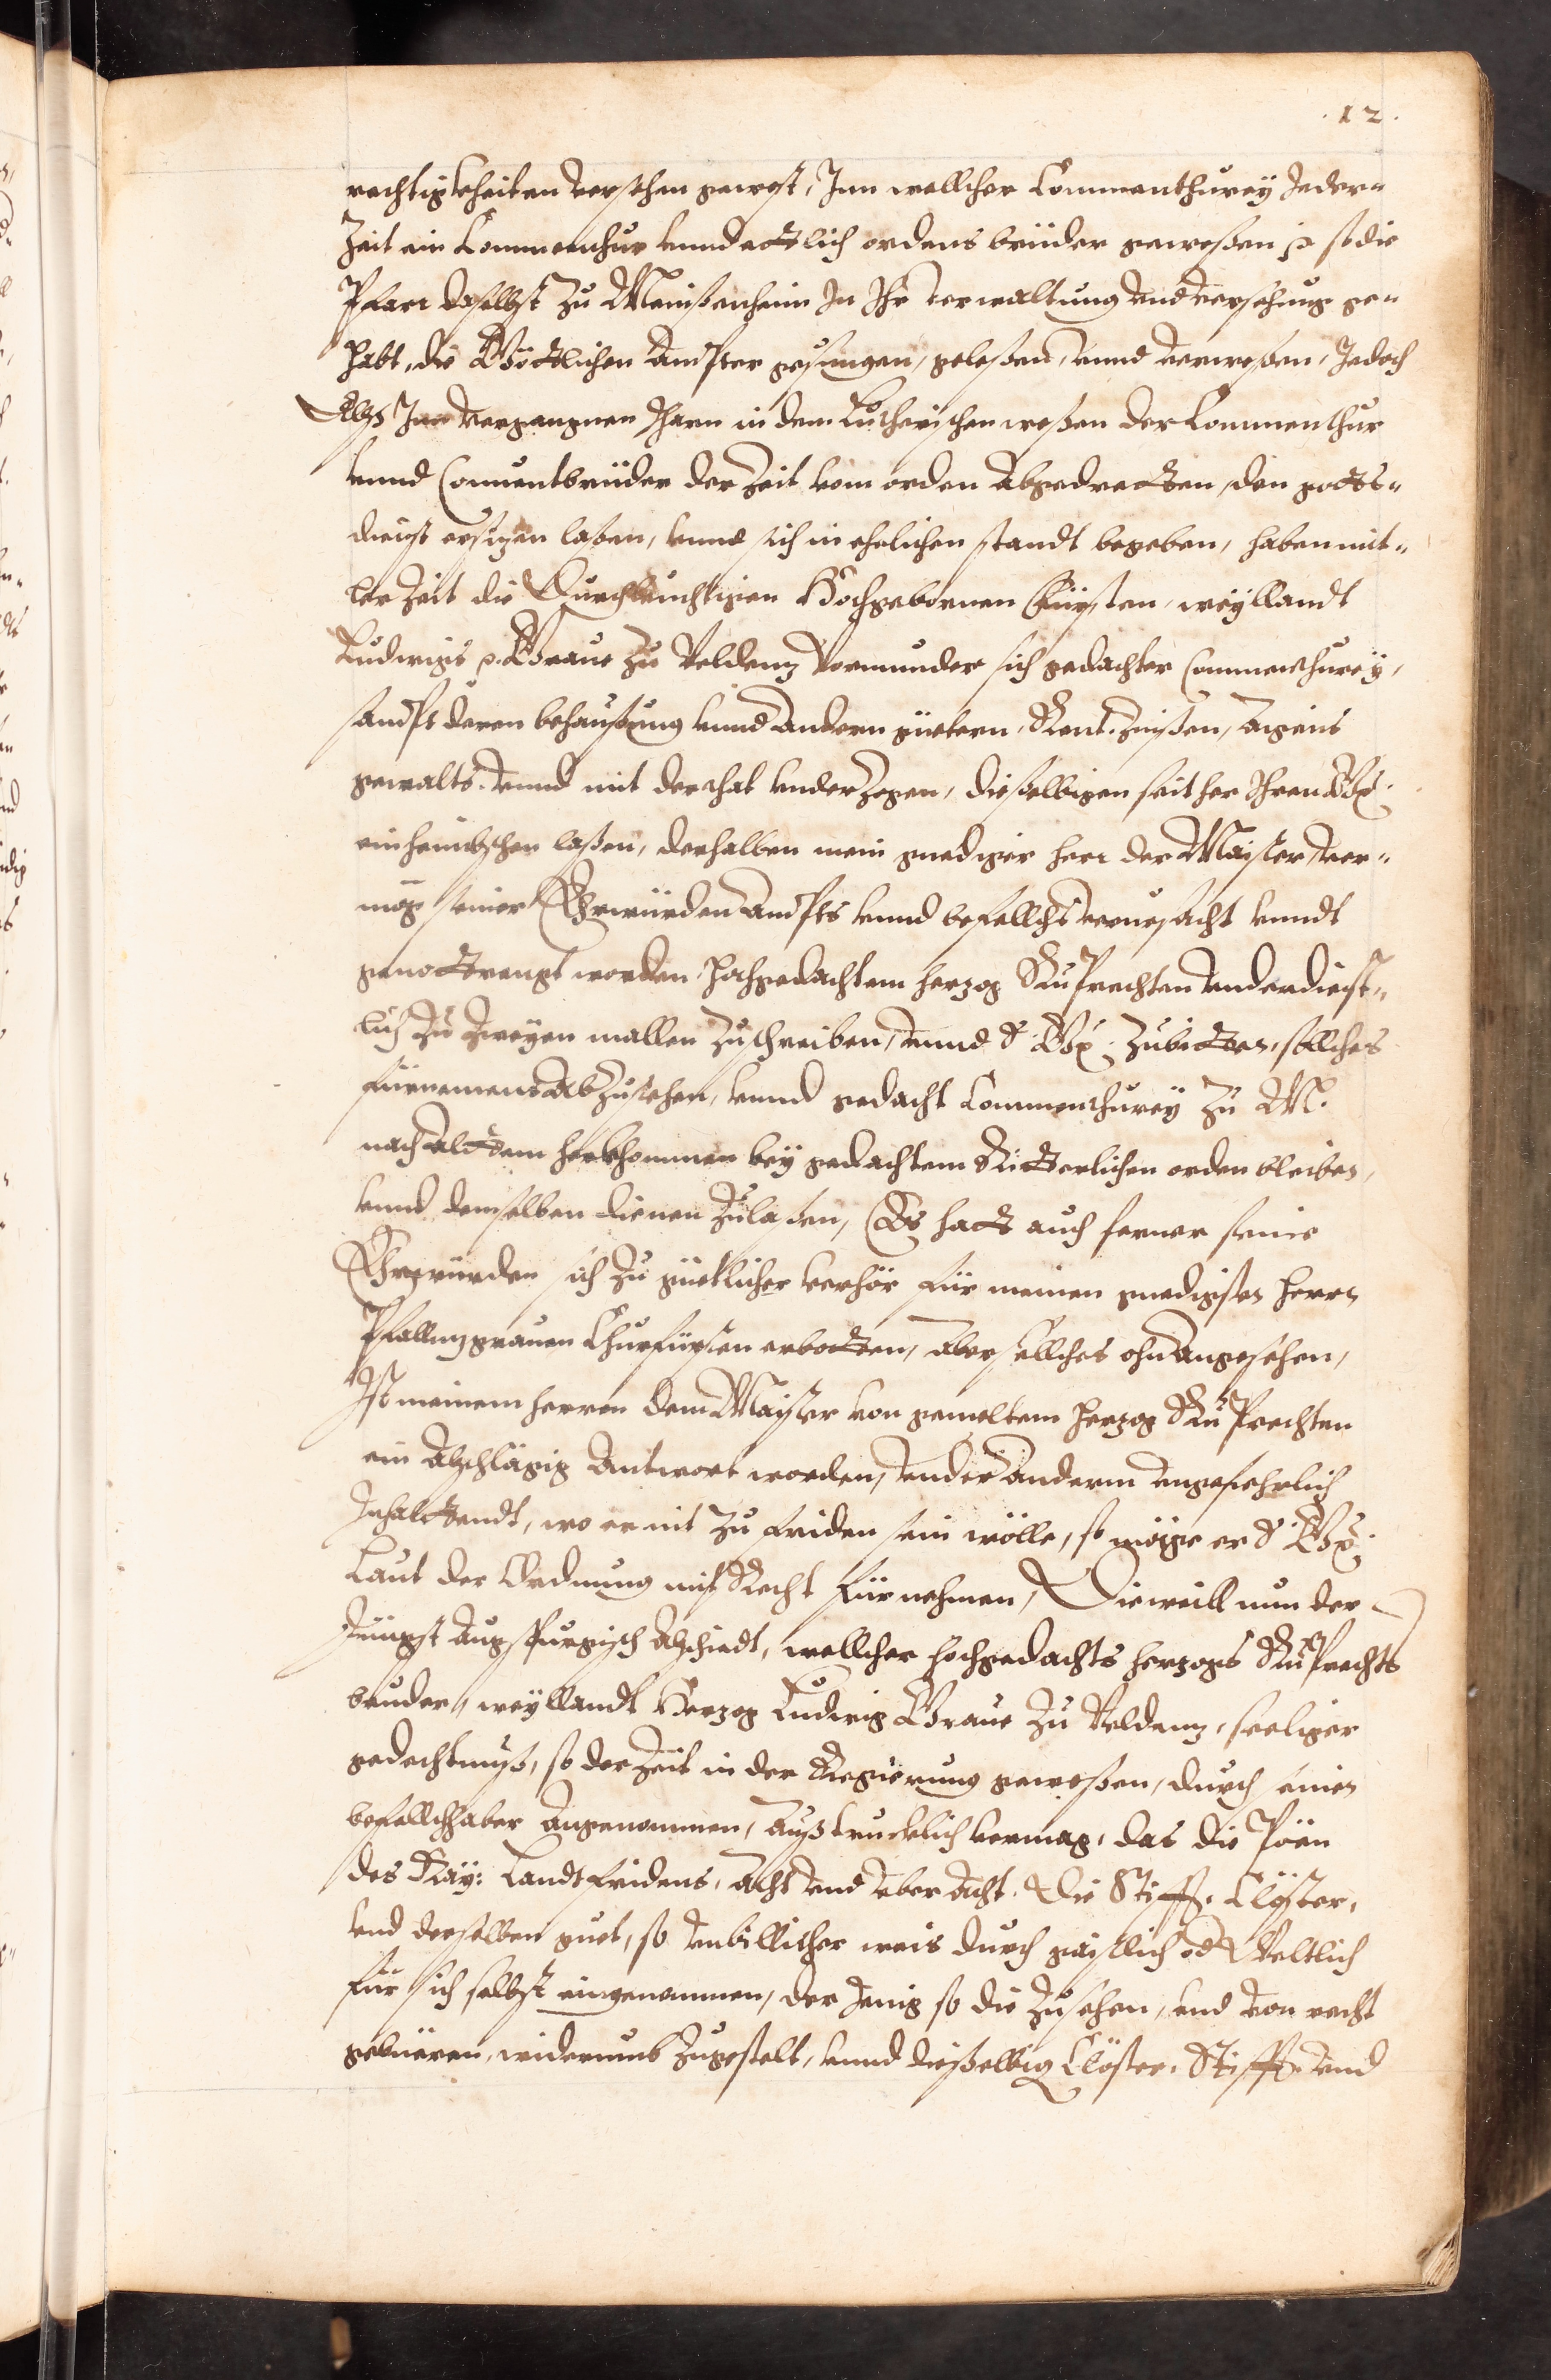 .12.
rechtigkheiten versehen gewest, Inn wellcher Commenthurey Jeder-
Zeit ein Commenthur vnnd ettlich ordens brüder geweßen ꝛc so die
Pfarr daselbst zu Meißenheim In Ihr verwaltung vnd versehung ge-
habt, die Göttlichen Ämpter gesungen, geleßen, vnnd verweßen, Jedoch
Allß Inn vergangnen Jharn in dem Lutherischen weßen der Commenthur
vnnd Conuentbrüder der Zeit vom orden abgedretten, den gotts-
dienst ersitzen laßen, vnnd sich in ehelichen standt begeben, haben mit-
ler Zeit die Durchleuchtigen Hochgebornen Fürsten, weyllandt
Ludwigs ꝛc. Graue zu Veldenz Vormunder sich gedachter Commenthurey,
sampt deren behaußung vnnd andern güetern, Rent. Zinßen, aigens
gewalts. vnnd mit der that vnderzogen, dießelbigen seither Ihren Gn.
einheimbschen laßen, derhalben mein gnediger herr der Maister ver-
mög seiner Ehrwürden ampts vnnd befellchs veruhrsacht vnndt
genottrengt worden hochgedachtem herzog Ruprechten vnderdienst-
lich zu zweyen mallen zuschreiben, vnnd S. Gn. zubitten, sollches
fürnemens abzustehen, vnnd gedacht Commenthurey zu M.
nach altem herkhommen bey gedachtem Ritterlichen orden bleiben,
vnnd demselben dienen zulaßen, Es hatt auch ferner seine
Ehrwürden sich zu güetlicher verhör für meinen gnedigsten herrn
Pfalltzgrauen Churfürsten erbotten, aber sollches ohn angesehen,
Ist meinem herren dem Maister von gemeltem herzog Ruprechten
ein abschlägig antwort worden, vnder anderm vngefehrlich
Inhalttendt, wo er nit zu friden sein wölle, so möge er S. Gn.
Laut der Ordnung mit Recht fürnehmen, Dieweill nun der
Jüngst augspurgisch abschiedt, wellcher hochgedachts herzogs Ruprechts
bruder, weyllandt Herzog Ludwig Graue zu Veldenz, seeliger
gedechtnuß, so der Zeit in der Regierung geweßen, durch seinen
befellchhaber angenommen, außtrucklich vermag, das die Pöen
des Kay: Landtfridens, acht vnd aber acht, die Stifft, Clöster,
vnd derselben guet, so vnbillicher weis durch gaistlich od Weltlich
für sich selbst eingenommen, der Jenig so die zustehen, vnd von recht
gebüeren, widerumb zugestelt, vnnd dießelbig Clöster, Stifft vnd